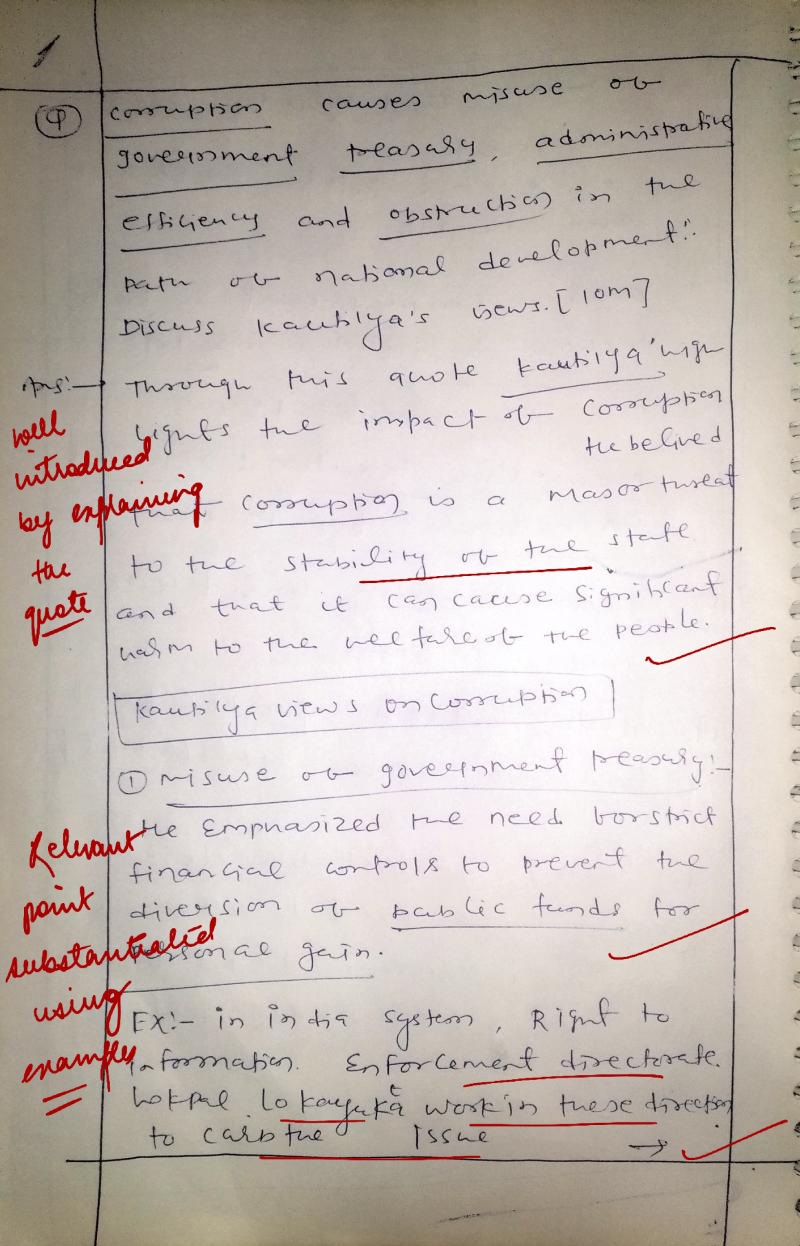 1
Q
corruption causes misuse of
government treasury, administrative
efficiency and obstruction in the
path of national development".
Discuss Kautilya's views. [10M]
Ans:→ Through this quote Kautilya high
lights the impact of corruption
He belived
that corruption is a major threat
to the stability of the state
and that it can cause significant
harm to the welfare of the people.
well
introduced
by explaining
the
quote
Kautilya views on Corruption
① Misuse of government treasury:-
He Emphasized the need for strict
financial controls to prevent the
diversion of public funds for
personal gain.
Relevant
point
substantiated
using
examples
EX:- in india system, Right to
information. Enforcement directorate.
Lokpal lokayukta work in these direction
to curb the issue →